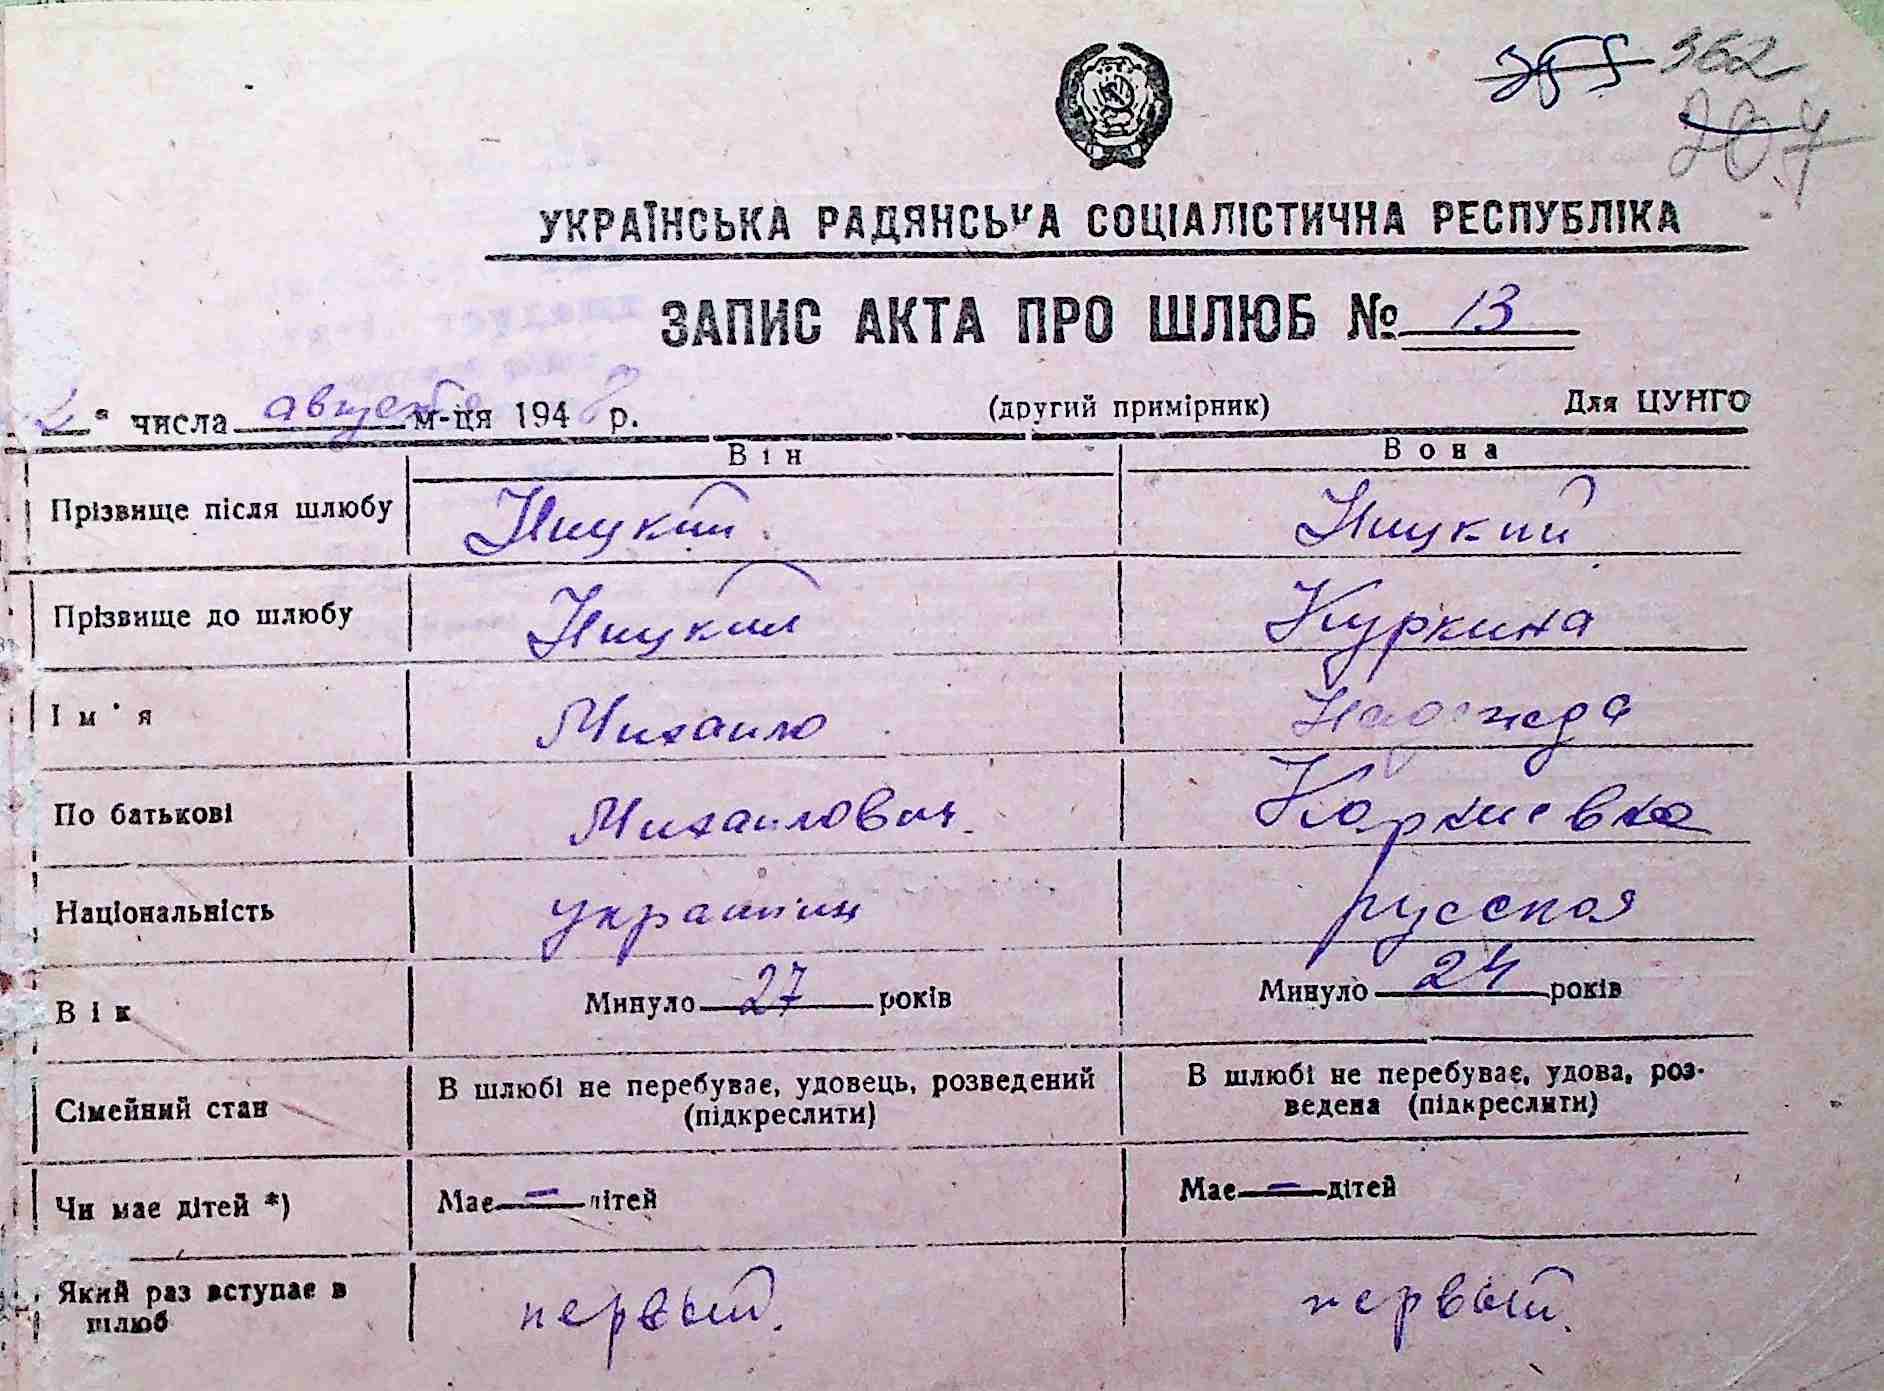 362
УКРАЇНСЬКА РАДЯНСЬКА СОЦІАЛІСТИЧНА РЕСПУБЛІКА
ЗАПИС АКТА ПРО ШЛЮБ № 13
2 " числа августа м-ця 1948 р. (другий примірник) Для ЦУНГО
Він Вона
Прізвище після шлюбу Ницкий Ницкий
Прізвище до шлюбу Ницкий Куркина
Ім'я Михаило Надежда
По батькові Михаилович
Національність украинин русская
Вік Минуло 27 років Минуло 24 років
Сімейний стан В шлюбі не перебуває, удовець, розведений (підкреслити) В шлюбі не перебуває, удова, роз-
ведена (підкреслити)
Чи має дітей *) Має — дітей Має — дітей
Який раз вступає в шлюб первый. первый.